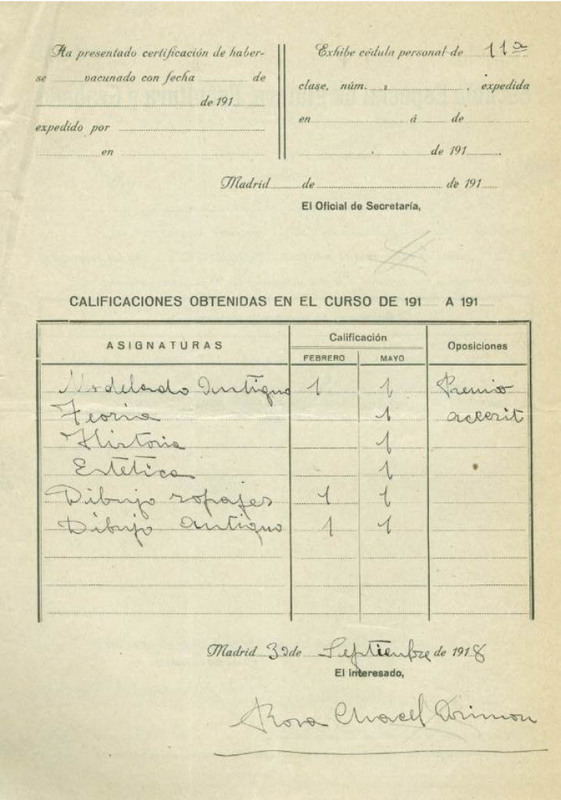 Ha presentado certificación de haber-
se vacunado con fecha de
de 191
expedido por
en
Exhibe cédula personal de 11ª
clase, núm. , expedida
en á de
de 191
Madrid de de 191
El Oficial de Secretaría,
CALIFICACIONES OBTENIDAS EN EL CURSO DE 191 A 191
ASIGNATURAS Calificación Oposiciones
FEBRERO MAYO
Modelado Antiguo 1 1 Premio
Teoria 1 accesit
Historia 1
Estética 1
Dibujo ropajes 1 1
Dibujo antiguo 1 1
Madrid 30 de Septiembre de 1918
El interesado,
Rosa Chacel Arimon